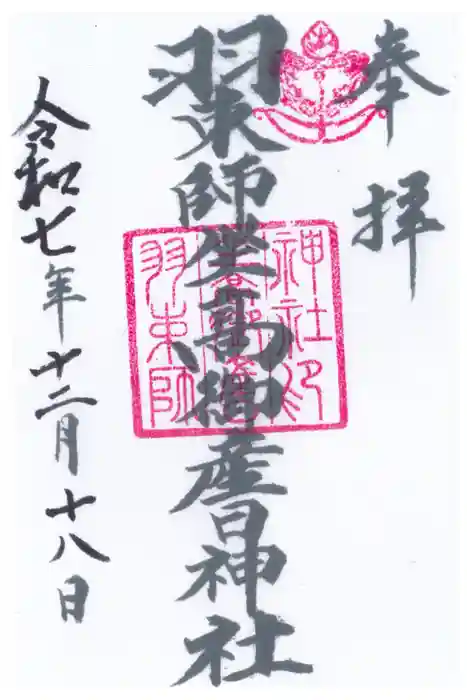 奉拝
羽束師坐高御産日神社
神社印
羽束師
令和七年十二月十八日